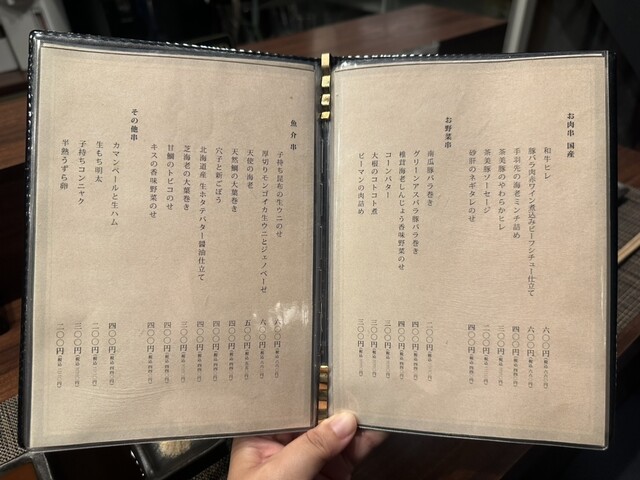 お肉串 国産
和牛ヒレ 六〇〇円
豚バラ肉赤ワイン煮込みビーフシチュー仕立て 六〇〇円
手羽先の海老ミンチ詰め 四〇〇円
茶美豚のやわらかヒレ 三〇〇円
茶美豚ソーセージ 二〇〇円
砂肝のネギダレのせ 四〇〇円
お野菜串
南瓜豚バラ巻き 二〇〇円
グリーンアスパラ豚バラ巻き 四〇〇円
椎茸海老しんじょう香味野菜のせ 四〇〇円
コーンバター 三〇〇円
大根のコトコト煮 三〇〇円
ピーマンの肉詰め 三〇〇円
魚介串
子持ち昆布の生ウニのせ
厚切りモンゴイカ生ウニとジェノベーゼ
天使の海老 五〇〇円
天然鯛の大葉巻き 四〇〇円
穴子と新ごぼう 四〇〇円
北海道産 生ホタテバター醤油仕立て 四〇〇円
芝海老の大葉巻き 三〇〇円
甘鯛のトビコのせ 四〇〇円
キスの香味野菜のせ 四〇〇円
その他串
カマンベールと生ハム 四〇〇円
生もち明太 二〇〇円
子持ちコンニャク 三〇〇円
半熟うずら卵 二〇〇円